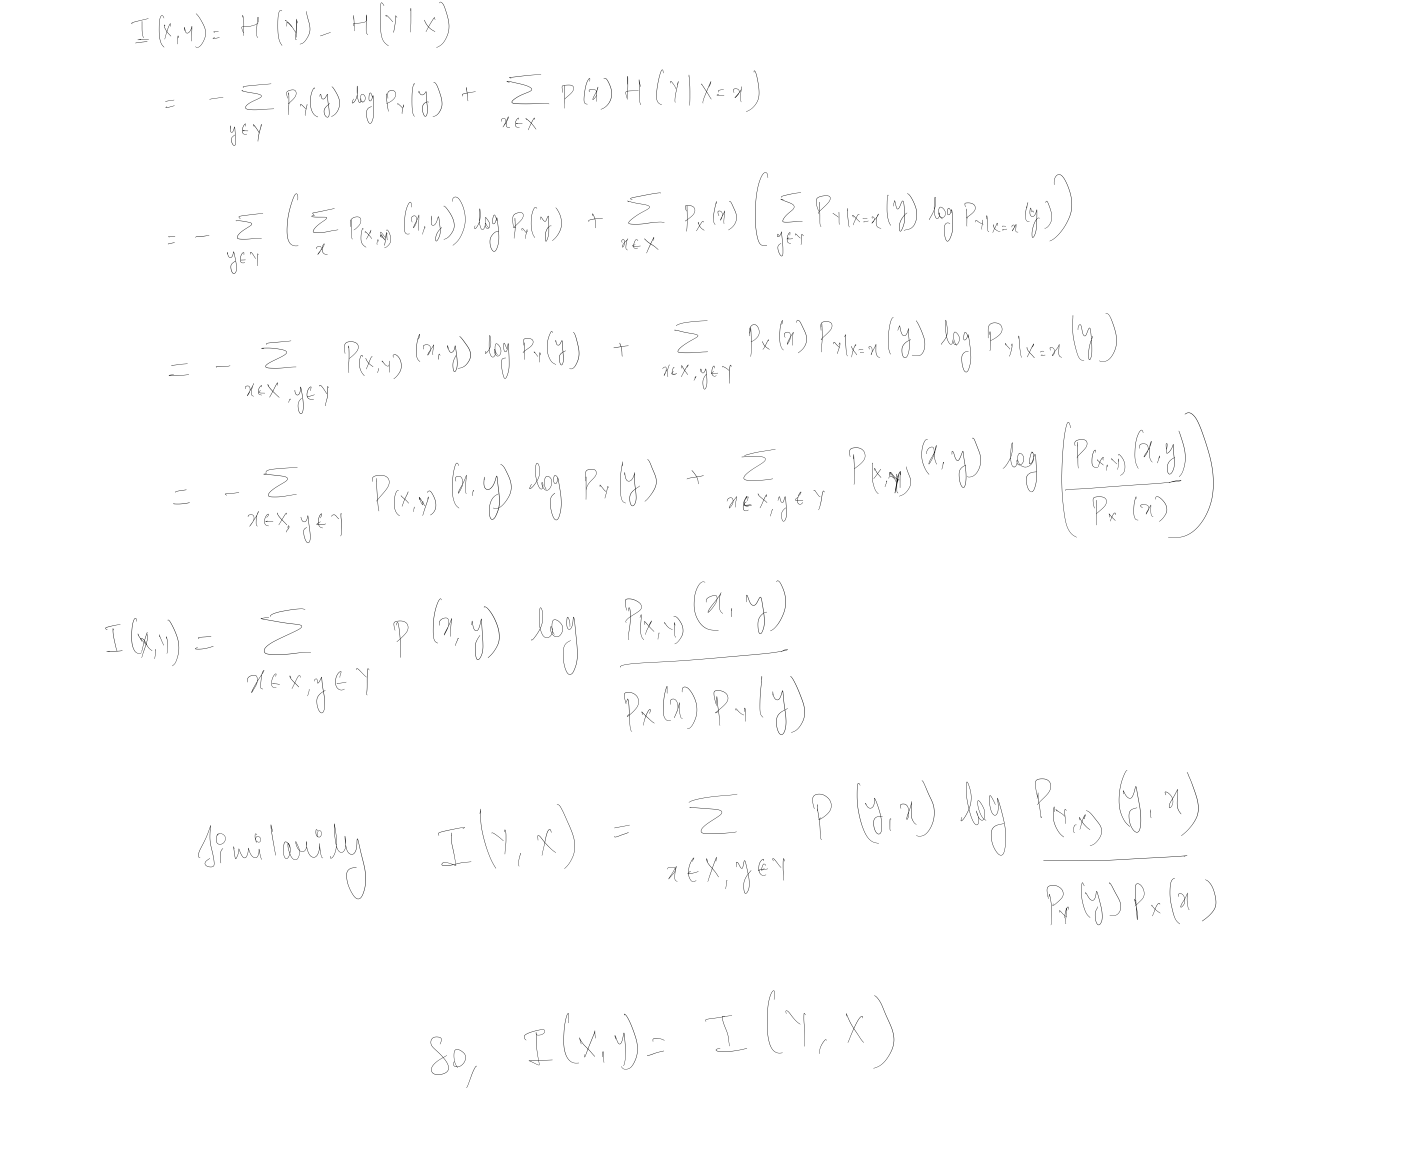 I(X,Y) = H(Y) - H(Y|X)
= - ∑_{y∈Y} P_Y(y) log P_Y(y) + ∑_{x∈X} P(x) H(Y|X=x)
= - ∑_{y∈Y} (∑_x P_{(X,Y)}(x,y)) log P_Y(y) + ∑_{x∈X} P_X(x) (∑_{y∈Y} P_{Y|X=x}(y) log P_{Y|X=x}(y))
= - ∑_{x∈X, y∈Y} P_{(X,Y)}(x,y) log P_Y(y) + ∑_{x∈X, y∈Y} P_X(x) P_{Y|X=x}(y) log P_{Y|X=x}(y)
= - ∑_{x∈X, y∈Y} P_{(X,Y)}(x,y) log P_Y(y) + ∑_{x∈X, y∈Y} P_{(X,Y)}(x,y) log (P_{(X,Y)}(x,y) / P_X(x))
I(X,Y) = ∑_{x∈X, y∈Y} P(x,y) log P_{(X,Y)}(x,y) / P_X(x) P_Y(y)
Similarily I(Y,X) = ∑_{x∈X, y∈Y} P(y,x) log P_{(Y,X)}(y,x) / P_Y(y) P_X(x)
So, I(X,Y) = I(Y,X)